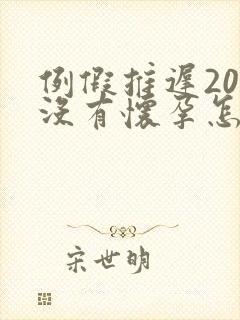 例假推遲20
沒有懷孕怎
宋世明